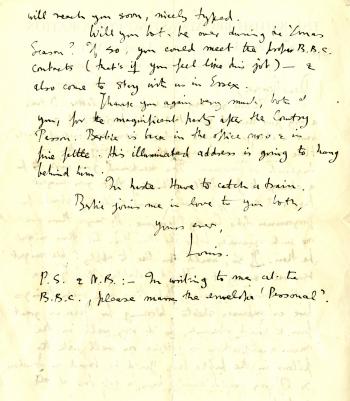 will reach you soon, nicely typed.
Will you both be over during the Xmas
Season? If so, you could meet the proper B.B.C.
contacts (that's if you feel like this job) — &
also come to stay with us in Essex.
Thank you again very much, both of
you, for the magnificent party after the Country
Person. Bertie is back in the office now & in
fine fettle. His illuminated address is going to hang
behind him.
In haste. Have to catch a train.
Bertie joins me in love to you both,
Yours ever,
Louis.
P.S. & N.B. :— In writing to me at the
B.B.C., please mark the envelope 'Personal'.